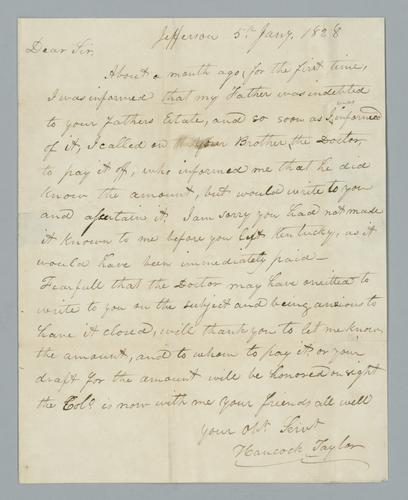 Jefferson 5th Jany. 1828
Dear Sir.
About a month ago, for the first time,
I was informed that my Father was indebted
to your Fathers Estate, and so soon as I was informed
of it, I called on your Brother, the Doctor,
to pay it off, who informed me that he did
know the amount, but would write to you
and ascertain it. I am sorry you had not made
it known to me before you left Kentucky, as it
would have been immediately paid —
Fearfull that the Doctor may have omitted to
write to you on the subject and being anxious to
have it closed, will thank you to let me know
the amount, and to whom to pay it or your
draft for the amount will be honored on sight
the Colo. is now with me your friends all well
your Obt. Servt.
Hancock Taylor